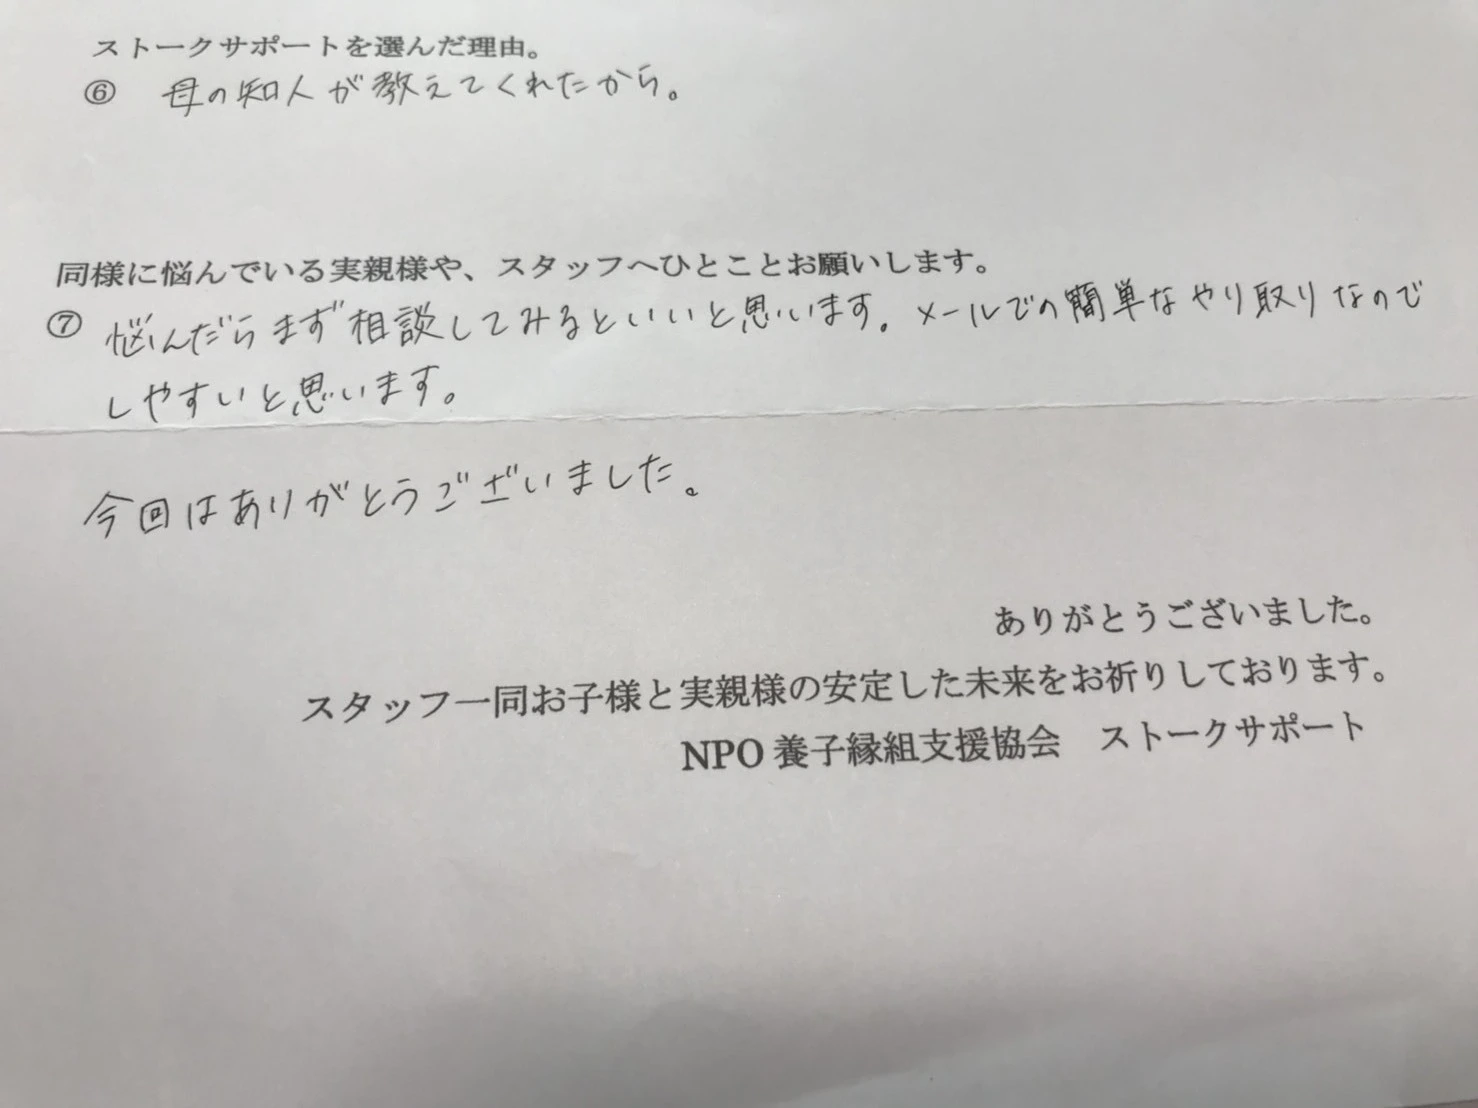 ストークサポートを選んだ理由。
⑥ 母の知人が教えてくれたから。
同様に悩んでいる実親様や、スタッフへひとことお願いします。
⑦ 悩んだらまず相談してみるといいと思います。メールでの簡単なやり取りなので
しやすいと思います。
今回はありがとうございました。
ありがとうございました。
スタッフ一同お子様と実親様の安定した未来をお祈りしております。
NPO 養子縁組支援協会　ストークサポート